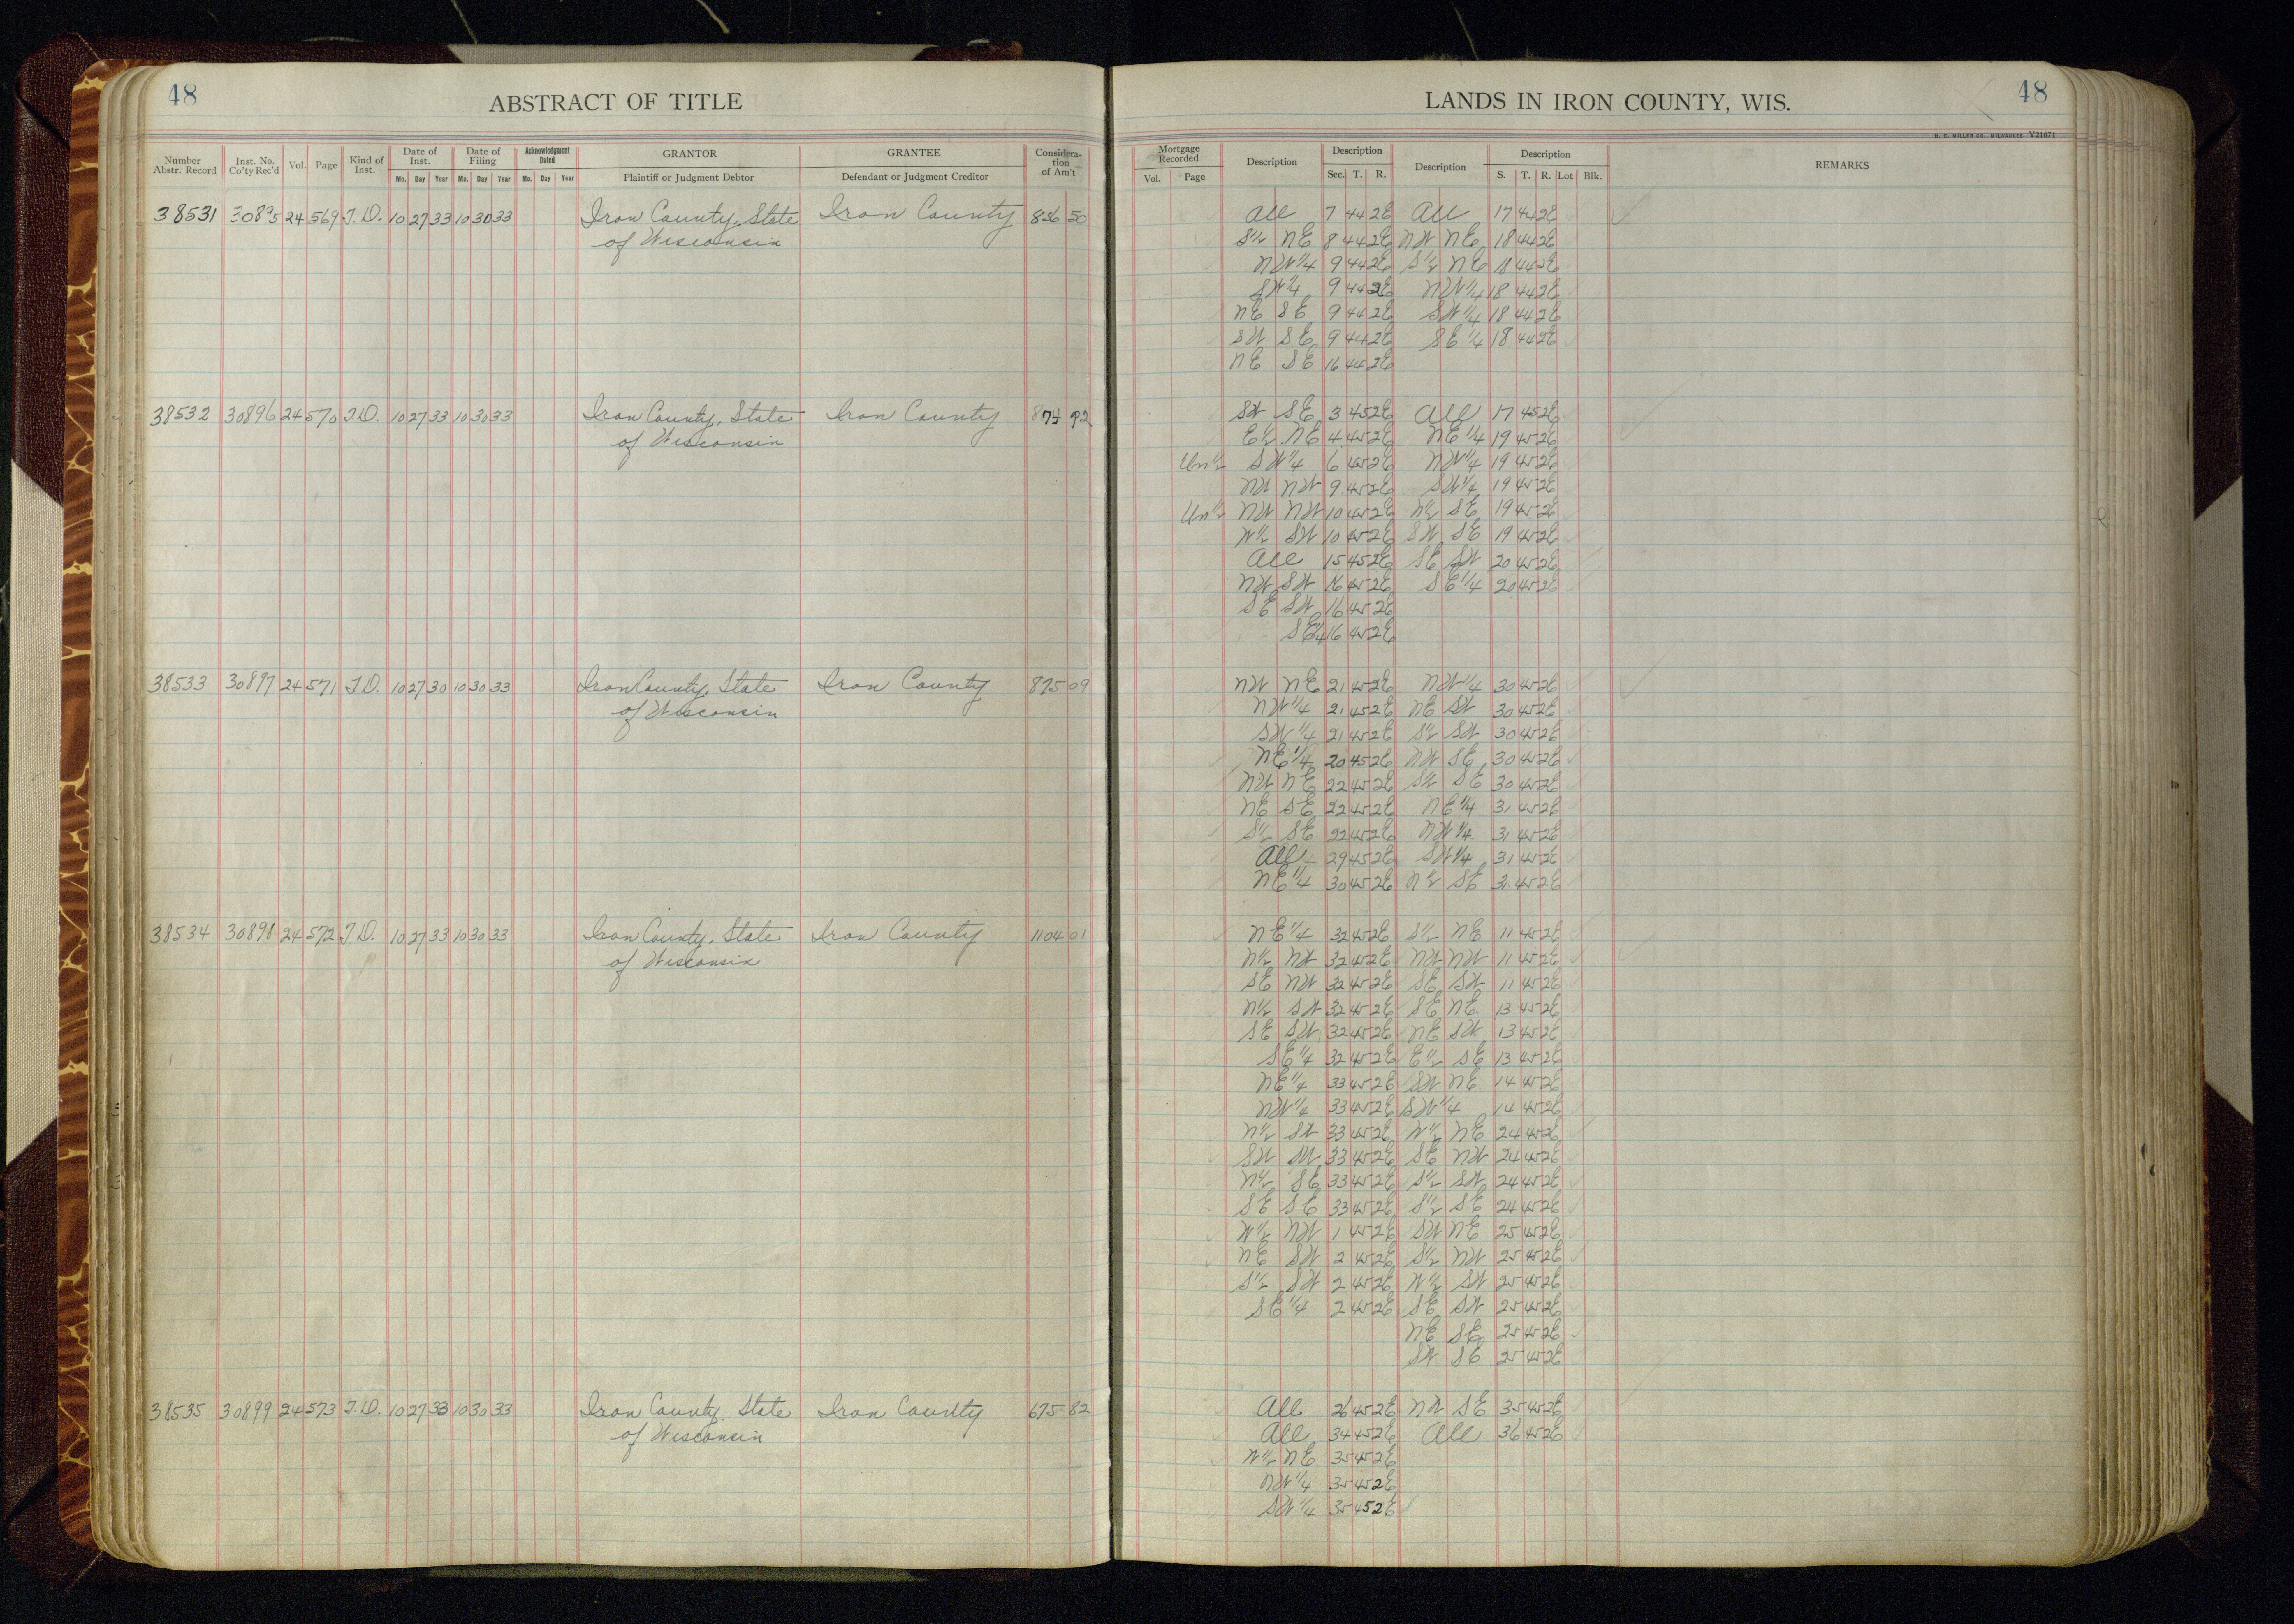 48
ABSTRACT OF TITLE
Number Abstr. Record | Inst. No. Co'ty Rec'd | Vol. | Page | Kind of Inst. | Date of Inst. Mo. Day Year | Date of Filing Mo. Day Year | Acknowledgment Dated Mo. Day Year | GRANTOR Plaintiff or Judgment Debtor | GRANTEE Defendant or Judgment Creditor | Consideration of Am't
38531 30895 24 569 T.D. 10 27 33 10 30 33 Iron County, State Iron County 836 50
of Wisconsin
38532 30896 24 570 T.D. 10 27 33 10 30 33 Iron County, State Iron County 874 92
of Wisconsin
38533 30897 24 571 T.D. 10 27 30 10 30 33 Iron County, State Iron County 875 09
of Wisconsin
38534 30898 24 572 T.D. 10 27 33 10 30 33 Iron County, State Iron County 1104 01
of Wisconsin
38535 30899 24 573 T.D. 10 27 33 10 30 33 Iron County, State Iron County 675 82
of Wisconsin
LANDS IN IRON COUNTY, WIS.
48
H. C. MILLER CO., MILWAUKEE Y21671
Mortgage Recorded Vol. Page | Description | Description Sec. T. R. | Description | Description S. T. R. Lot Blk. | REMARKS
All 7 44 2E All 17 44 2E
S½ NE 8 44 2E NW NE 18 44 2E
NW¼ 9 44 2E S½ NE 18 44 2E
SW¼ 9 44 2E NW¼ 18 44 2E
NE SE 9 44 2E SW¼ 18 44 2E
SW SE 9 44 2E SE¼ 18 44 2E
NE SE 16 44 2E
SW SE 3 45 2E All 17 45 2E
E½ NE 4 45 2E NE¼ 19 45 2E
Un½ SW¼ 6 45 2E NW¼ 19 45 2E
NW NW 9 45 2E SW¼ 19 45 2E
Un½ NW NW 10 45 2E N½ SE 19 45 2E
W½ SW 10 45 2E SW SE 19 45 2E
All 15 45 2E SE SW 20 45 2E
NW SW 16 45 2E SE¼ 20 45 2E
SE SW 16 45 2E
SE¼ 16 45 2E
NW NE 21 45 2E NW¼ 30 45 2E
NW¼ 21 45 2E NE SW 30 45 2E
SW¼ 21 45 2E S½ SW 30 45 2E
NE¼ 20 45 2E NW SE 30 45 2E
NW NE 22 45 2E S½ SE 30 45 2E
NE SE 22 45 2E NE¼ 31 45 2E
S½ SE 22 45 2E NW¼ 31 45 2E
All 29 45 2E SW¼ 31 45 2E
NE¼ 30 45 2E N½ SE 31 45 2E
NE¼ 32 45 2E S½ NE 11 45 2E
N½ NW 32 45 2E NW NW 11 45 2E
SE NW 32 45 2E SE SW 11 45 2E
N½ SW 32 45 2E SE NE 13 45 2E
SE SW 32 45 2E NE SW 13 45 2E
SE¼ 32 45 2E E½ SE 13 45 2E
NE¼ 33 45 2E SW NE 14 45 2E
NW¼ 33 45 2E SW¼ 14 45 2E
N½ SW 33 45 2E W½ NE 24 45 2E
SW SW 33 45 2E SE NW 24 45 2E
N½ SE 33 45 2E S½ SW 24 45 2E
SE SE 33 45 2E S½ SE 24 45 2E
W½ NW 1 45 2E SW NE 25 45 2E
NE SW 2 45 2E S½ NW 25 45 2E
S½ SW 2 45 2E W½ SW 25 45 2E
SE¼ 2 45 2E SE SW 25 45 2E
NE SE 25 45 2E
SW SE 25 45 2E
All 26 45 2E NW SE 35 45 2E
All 34 45 2E All 36 45 2E
W½ NE 35 45 2E
NW¼ 35 45 2E
SW¼ 35 45 2E